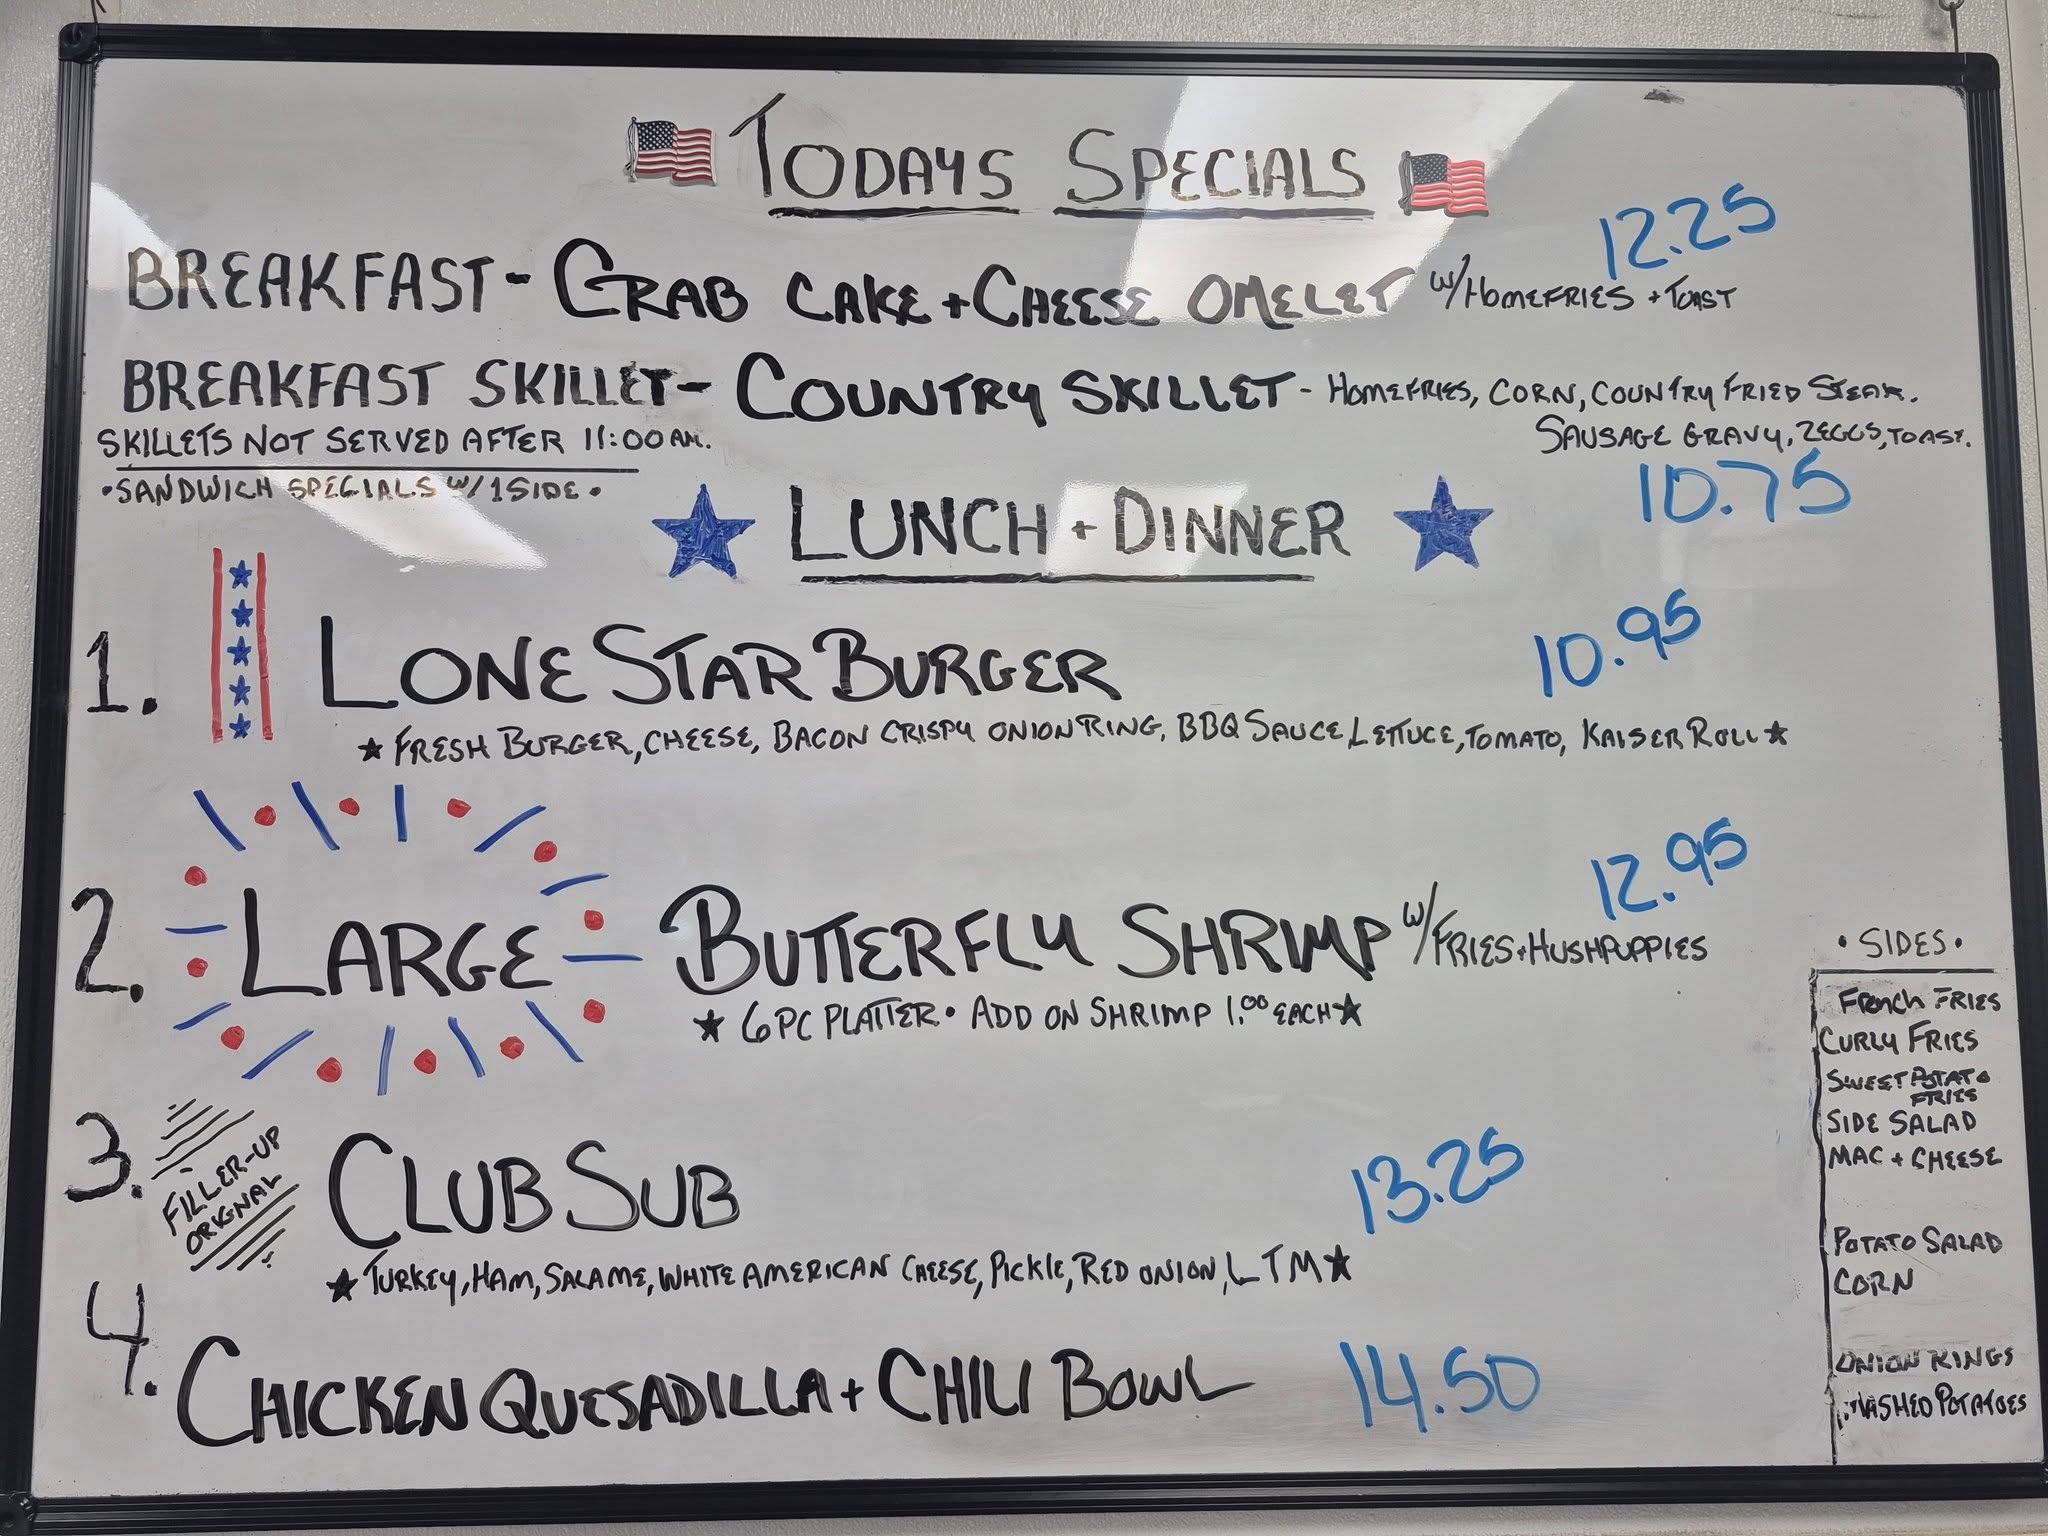 TODAYS SPECIALS
12.25
BREAKFAST - CRAB CAKE + CHEESE OMELET W/HOMEFRIES + TOAST
BREAKFAST SKILLET - COUNTRY SKILLET - HOMEFRIES, CORN, COUNTRY FRIED STEAK.
SAUSAGE GRAVY, 2EGGS, TOAST.
10.75
SKILLETS NOT SERVED AFTER 11:00AM.
•SANDWICH SPECIALS W/1SIDE•
LUNCH + DINNER
1. LONE STAR BURGER 10.95
★ FRESH BURGER, CHEESE, BACON CRISPY ONION RING, BBQ SAUCE, LETTUCE, TOMATO, KAISER ROLL ★
12.95
2. LARGE BUTTERFLY SHRIMP W/FRIES + HUSHPUPPIES
★ 6PC PLATTER • ADD ON SHRIMP 1.00 EACH ★
3. FILLER-UP
ORIGNAL
CLUB SUB 13.25
★ TURKEY, HAM, SALAME, WHITE AMERICAN CHEESE, PICKLE, RED ONION, LTM ★
4. CHICKEN QUESADILLA + CHILI BOWL 14.50
• SIDES •
FRENCH FRIES
CURLY FRIES
SWEET POTATO
FRIES
SIDE SALAD
MAC + CHEESE
POTATO SALAD
CORN
ONION RINGS
MASHED POTATOES